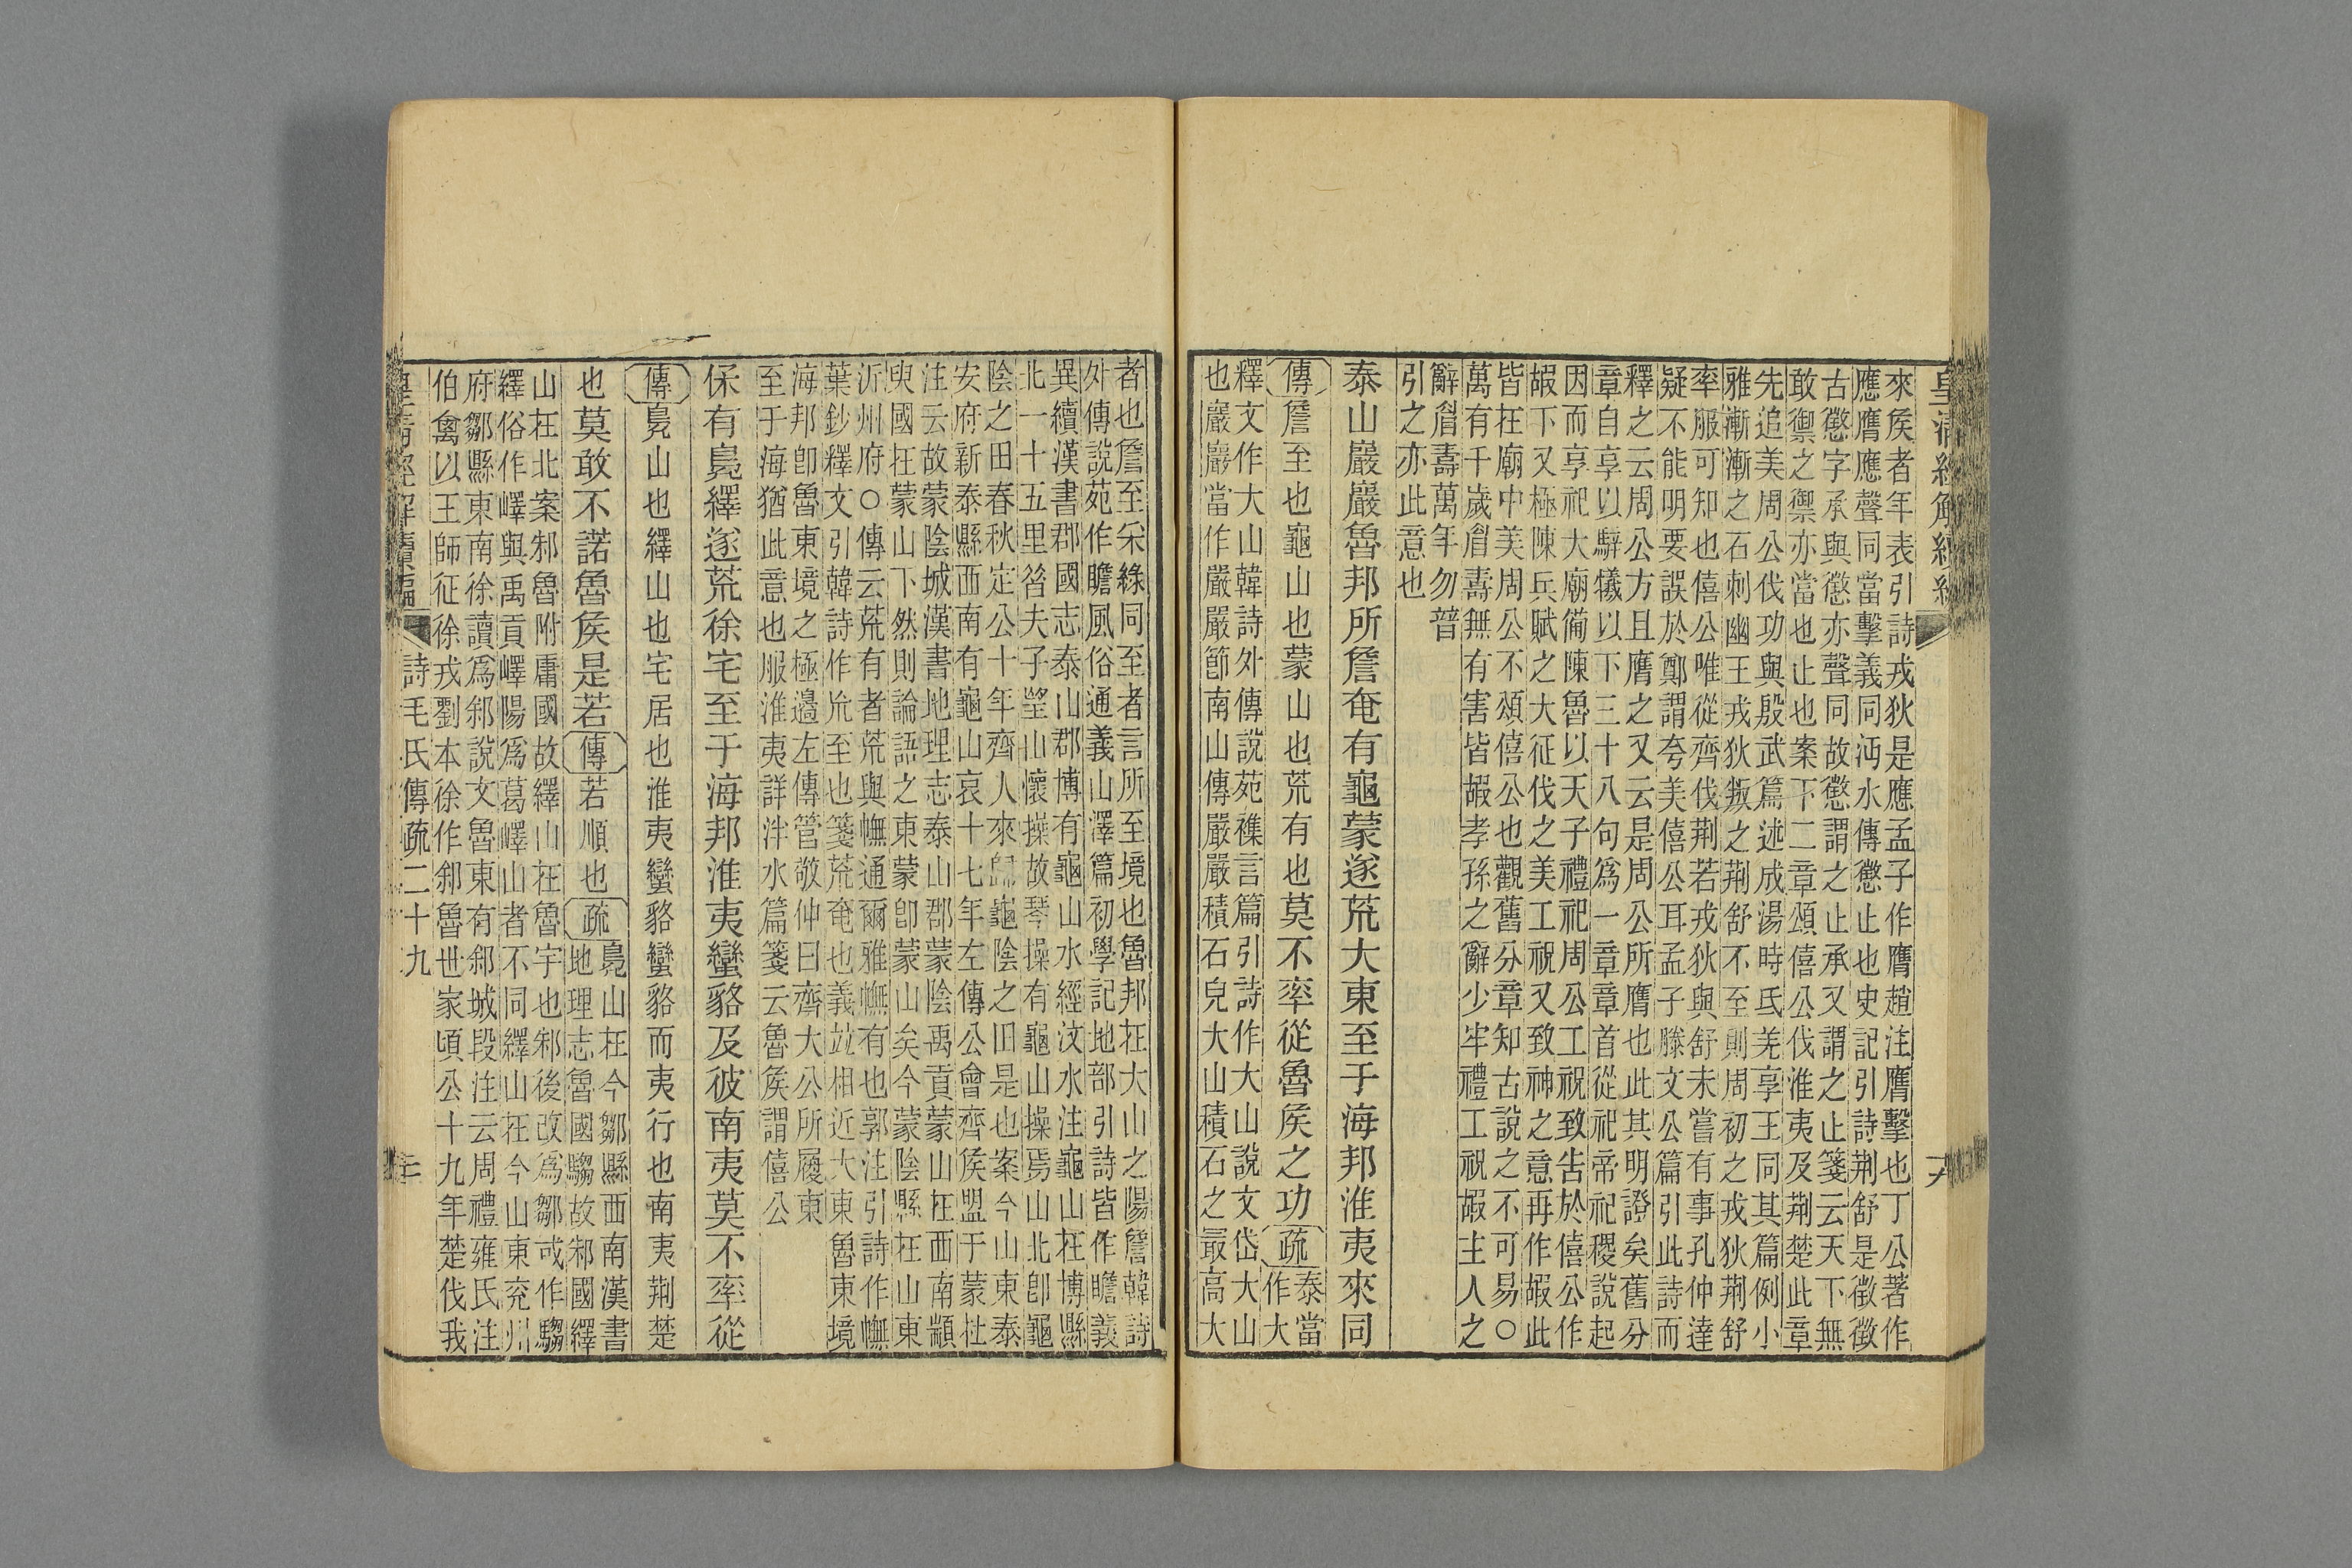 皇清經解續編
十八
來矦者年表引詩戎狄是應孟子作膺趙注膺擊也丁公著作
應膺應聲同當擊義同沔水傳懲止也史記引詩荆舒是徵徵
古懲字承與懲亦聲同故懲謂之止承又謂之止箋云天下無
敢禦之禦亦當也止也案下二章頌僖公伐淮夷及荆楚此章
先追美周公伐功與殷武篇述成湯時氐羌享王同其篇例小
雅漸漸之石刺幽王戎狄叛之荆舒不至則周初之戎狄荆舒
率服可知也僖公唯從齊伐荆若戎狄與舒未嘗有事孔仲達
疑不能明要誤於鄭謂夸美僖公耳孟子滕文公篇引此詩而
釋之云周公方且膺之又云是周公所膺也此其明證矣舊分
章自享以騂犧以下三十八句爲一章章首從祀帝祀稷說起
因而享祀大廟備陳魯以天子禮祀周公工祝致告於僖公作
嘏下又極陳兵賦之大征伐之美工祝又致神之意再作嘏此
皆在廟中美周公不頌僖公也觀舊分章知古說之不可易○
萬有千歲眉壽無有害皆嘏孝孫之辭少牢禮工祝嘏主人之
辭眉壽萬年勿暜
引之亦此意也
泰山巖巖魯邦所詹奄有龜蒙遂荒大東至于海邦淮夷來同
傳詹至也龜山也蒙山也荒有也莫不率從魯矦之功疏泰當作大
釋文作大山韓詩外傳說苑襍言篇引詩作大山說文岱大山
也巖巖當作嚴嚴節南山傳嚴嚴積石皃大山積石之最高大
者也詹至采綠同至者言所至境也魯邦在大山之陽詹韓詩
外傳說苑作瞻風俗通義山澤篇初學記地部引詩皆作瞻義
異續漢書郡國志泰山郡博有龜山水經汶水注龜山在博縣
北一十五里昔夫子望山懷操故琴操有龜山操焉山北卽龜
陰之田春秋定公十年齊人來歸龜陰之田是也案今山東泰
安府新泰縣西南有龜山哀十七年左傳公會齊矦盟于蒙杜
注云故蒙陰城漢書地理志泰山郡蒙陰禹貢蒙山在西南顓
臾國在蒙山下然則論語之東蒙卽蒙山矣今蒙陰縣在山東
沂州府○傳云荒有者荒與幠通爾雅幠有也郭注引詩作幠
葉鈔釋文引韓詩作㠩至也箋荒奄也義竝相近大東魯東境
海邦卽魯東境之極邊左傳管敬仲曰齊大公所履東
至于海猶此意也服淮夷詳泮水篇箋云魯矦謂僖公
保有鳧繹遂荒徐宅至于海邦淮夷蠻貉及彼南夷莫不率從
傳鳧山也繹山也宅居也淮夷蠻貉蠻貉而夷行也南夷荆楚
也莫敢不諾魯矦是若傳若順也疏鳧山在今鄒縣西南漢書地理志魯國騶故邾國繹
山在北案邾魯附庸國故繹山在魯宇也邾後改爲鄒或作騶
繹俗作嶧與禹貢嶧陽爲葛嶧山者不同繹山在今山東兖州
府鄒縣東南徐讀爲䣄說文魯東有䣄城段注云周禮雍氏注
伯禽以王師征徐戎劉本徐作䣄魯世家頃公十九年楚伐我
皇清經解續編
詩毛氏傳疏二十九